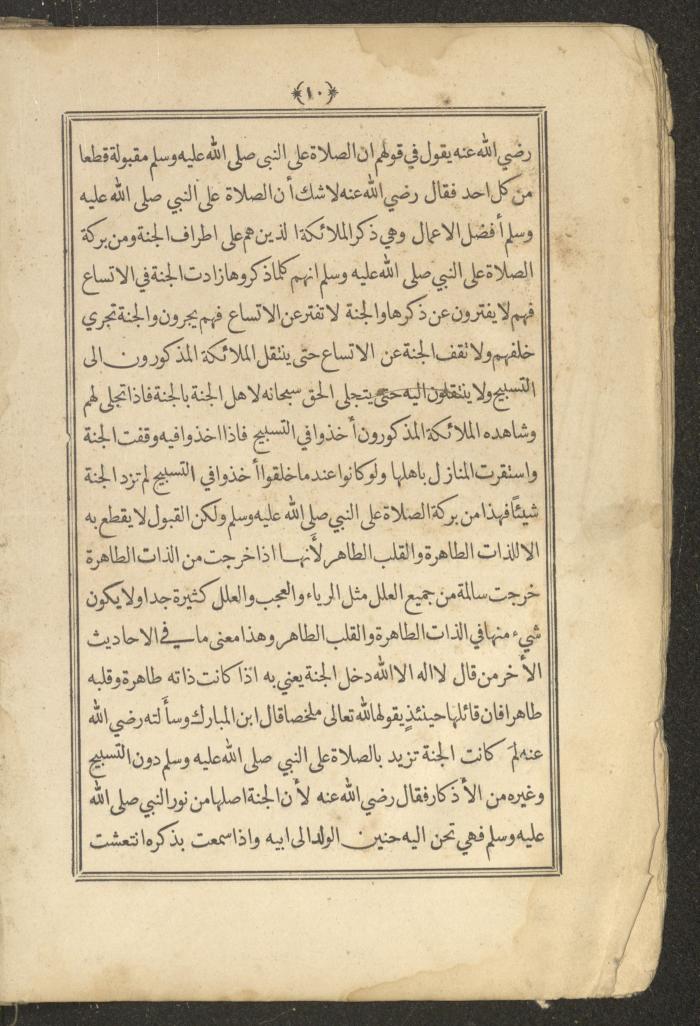 ﴿١٠﴾
رضي الله عنه يقول في قولهم ان الصلاة على النبي صلى الله عليه وسلم مقبولة قطعا
من كل احد فقال رضي الله عنه لا شك أن الصلاة على النبي صلى الله عليه
وسلم أفضل الاعمال وهي ذكر الملائكة الذين هم على اطراف الجنة ومن بركة
الصلاة على النبي صلى الله عليه وسلم انهم كلما ذكروها زادت الجنة في الاتساع
فهم لا يفترون عن ذكرها والجنة لا تفتر عن الاتساع فهم يجرون والجنة تجري
خلفهم ولا تقف الجنة عن الاتساع حتى ينتقل الملائكة المذكورون الى
التسبيح ولا ينتقلون اليه حتى يتجلى الحق سبحانه لاهل الجنة بالجنة فاذا تجلى لهم
وشاهده الملائكة المذكورون أخذوا في التسبيح فاذا اخذوا فيه وقفت الجنة
واستقرت المنازل باهلها ولو كانوا عند ما خلقوا أخذوا في التسبيح لم تزد الجنة
شيئاً فهذا من بركة الصلاة على النبي صلى الله عليه وسلم ولكن القبول لا يقطع به
الا للذات الطاهرة والقلب الطاهر لأنها اذا خرجت من الذات الطاهرة
خرجت سالمة من جميع العلل مثل الرياء والعجب والعلل كثيرة جدا ولا يكون
شيء منها في الذات الطاهرة والقلب الطاهر وهذا معنى ما في الاحاديث
الأخر من قال لا اله الا الله دخل الجنة يعني به اذا كانت ذاته طاهرة وقلبه
طاهرا فان قائلها حينئذٍ يقولها لله تعالى ملخصا قال ابن المبارك وسألته رضي الله
عنه لمَ كانت الجنة تزيد بالصلاة على النبي صلى الله عليه وسلم دون التسبيح
وغيره من الأذكار فقال رضي الله عنه لأن الجنة اصلها من نور النبي صلى الله
عليه وسلم فهي تحن اليه حنين الولد الى ابيه واذا سمعت بذكره انتعشت